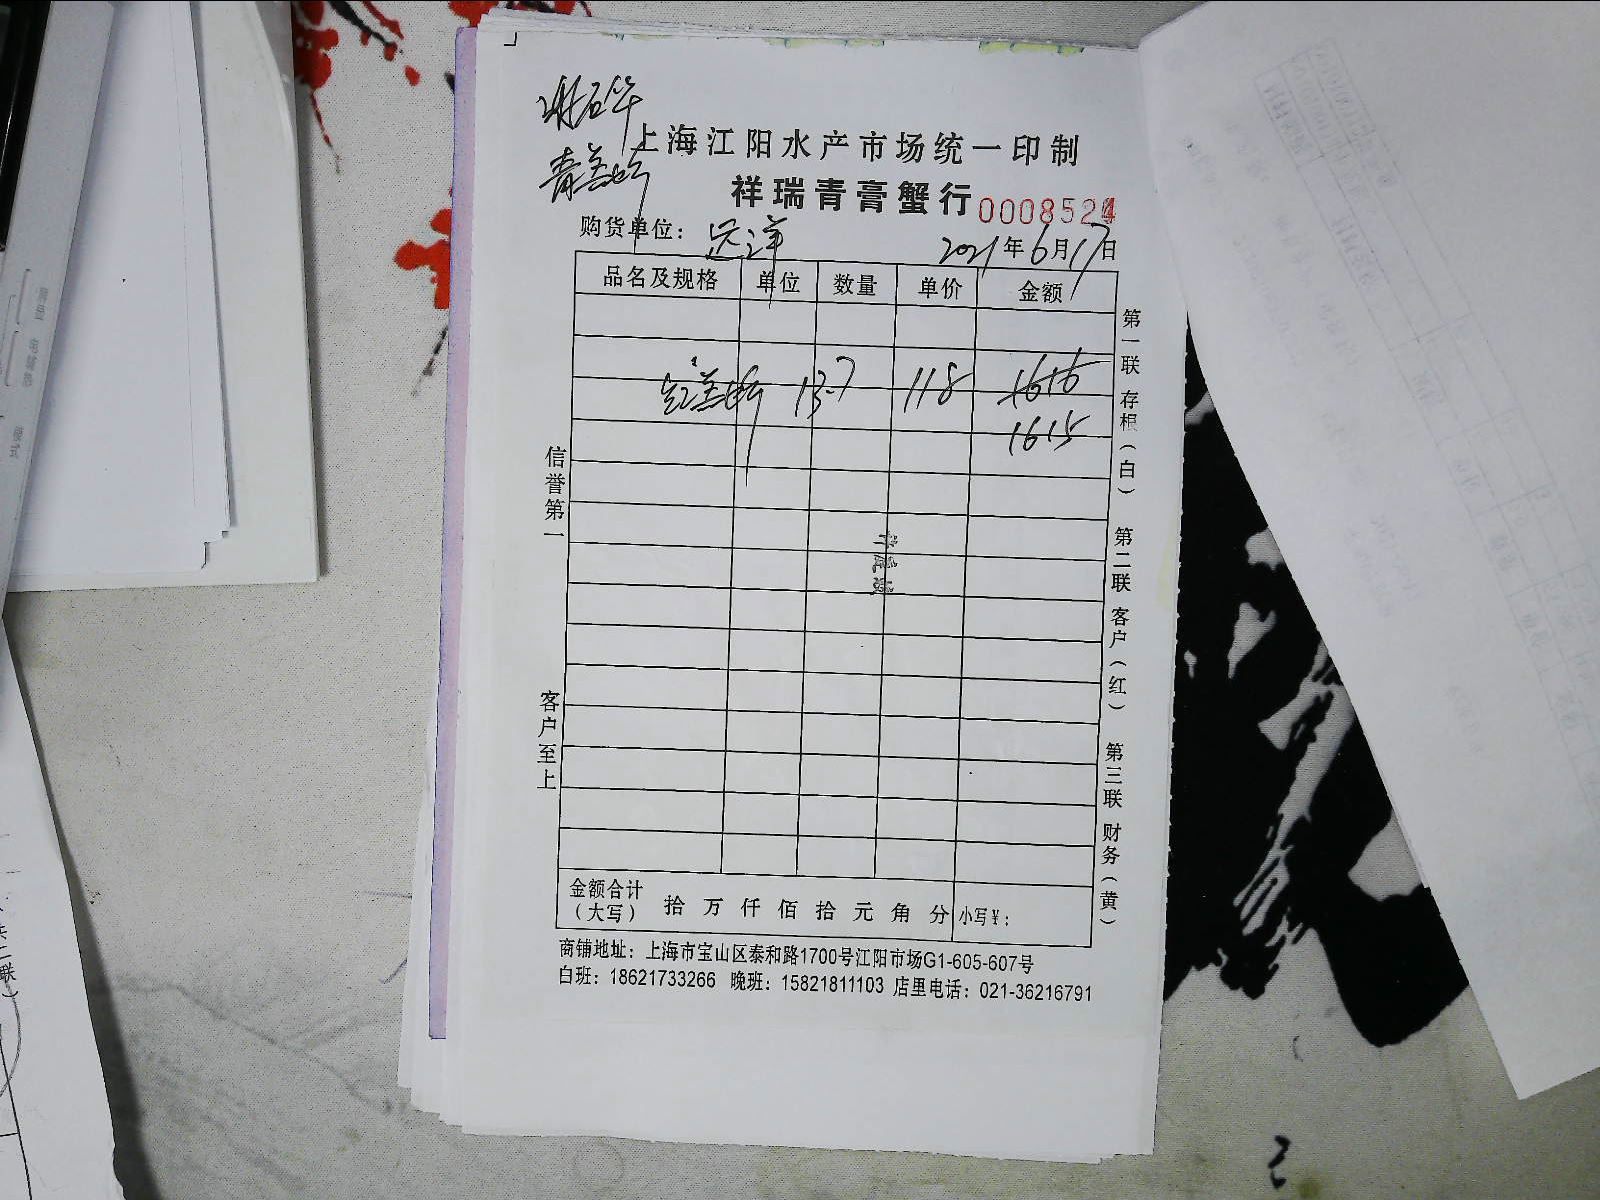 上海江阳水产市场统一印制
祥瑞青膏蟹行 0008524
购货单位： 远洋 2021年6月17日
品名及规格 单位 数量 单价 金额
13.7 118 1616
1615
信誉第一
客户至上
第一联 存根（白） 第二联 客户（红） 第三联 财务（黄）
金额合计（大写） 拾 万 仟 佰 拾 元 角 分 小写￥：
商铺地址：上海市宝山区泰和路1700号江阳市场G1-605-607号
白班：18621733266 晚班：15821811103 店里电话：021-36216791